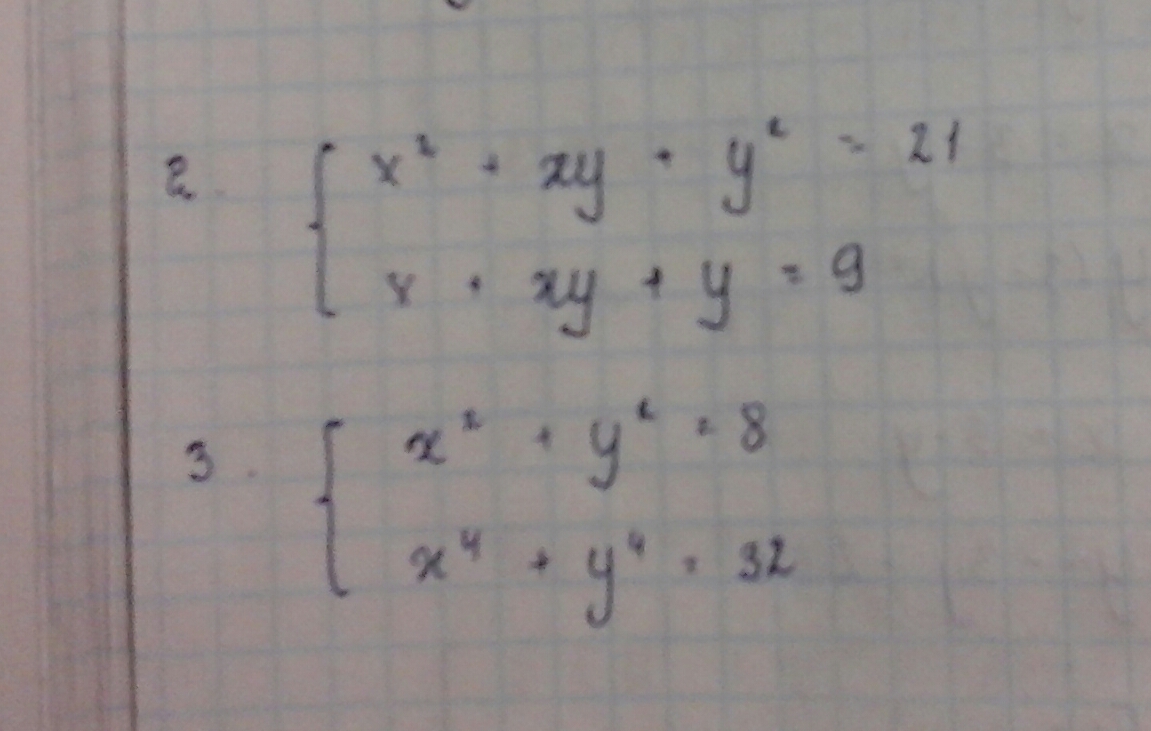 2. { x² + xy + y² = 21
x + xy + y = 9
3. { x² + y² = 8
x⁴ + y⁴ = 32